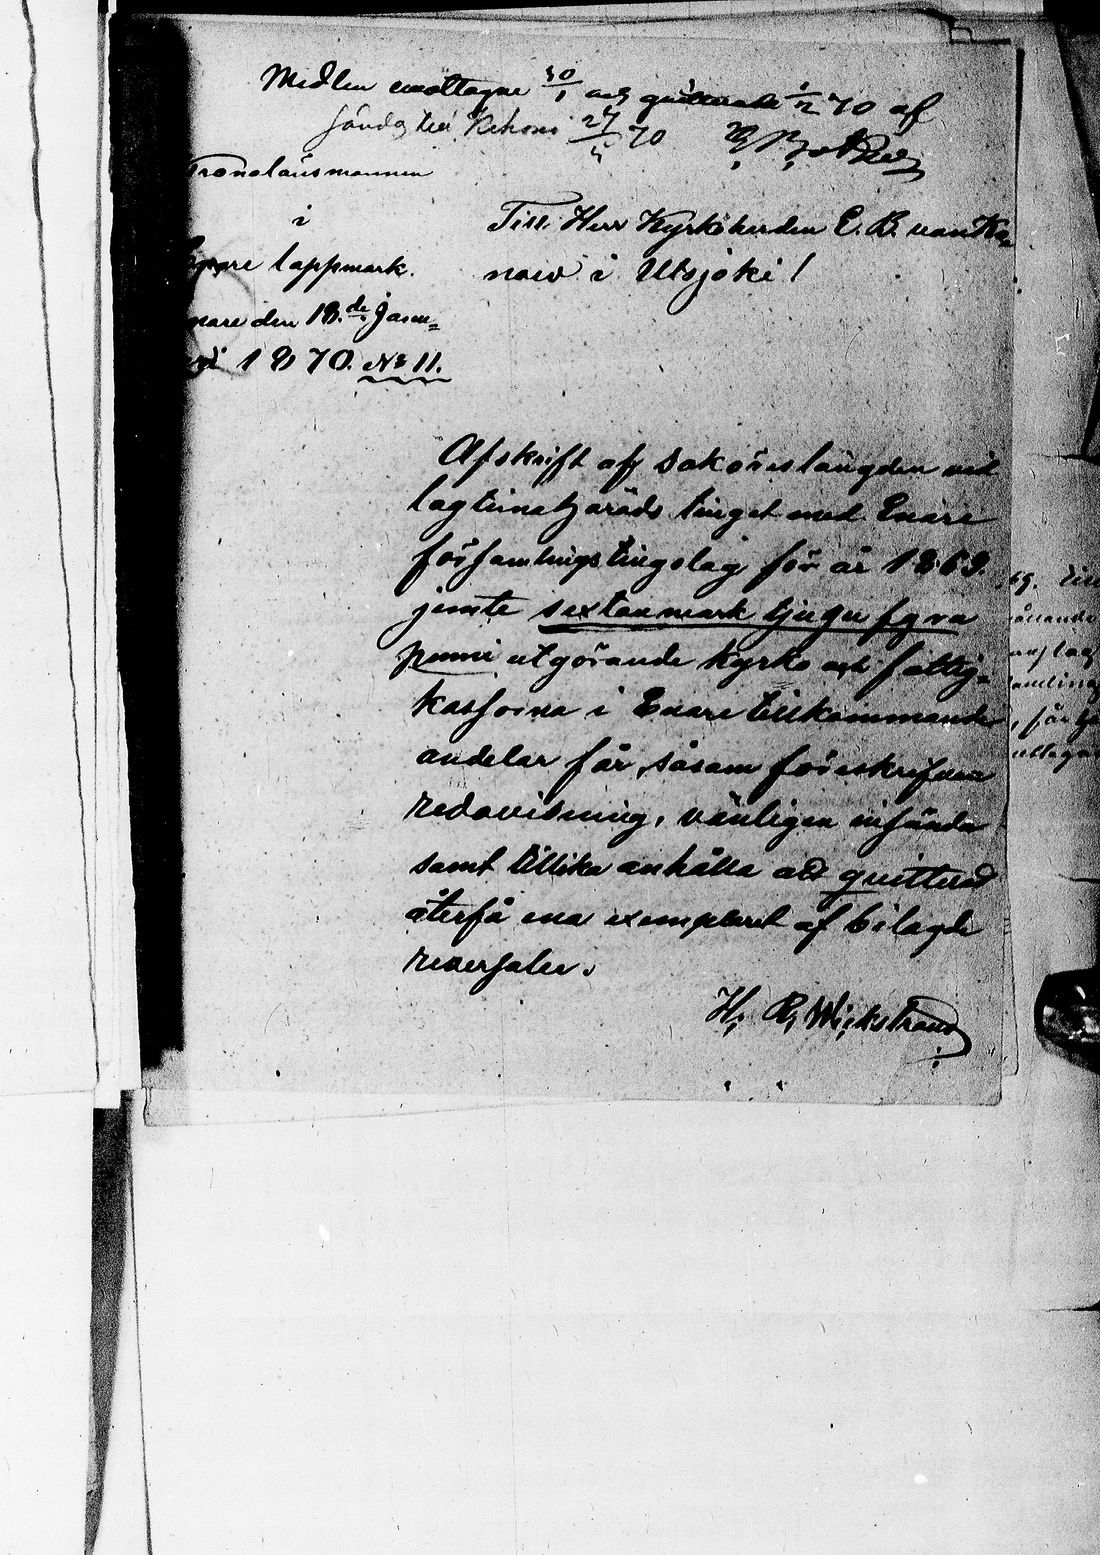 Medlen emottagne 30/1 och quitterade 1/2 70 af
sända till 27/4 70
Kronolänsmannen
i
lappmark.
Enare den 18.de Janu=
ari 1870. No 11.
Till Herr Kyrkoherden E. B. von
i Utsjoki!
Afskrift af saköreslängden vid
lagtima häradstinget med Enare
församlings tingslag för år 1869.
jemte sexton mark tjugu fyra
penni utgörande kyrko och fattig-
kassorna i Enare tillkommande
andelar får, såsom föreskrifven
redovisning, vänligen insända
samt tillika anhålla att quitterad
återfå ena exemplaret af bilagde
reversaler.
H. R. Wickstrand